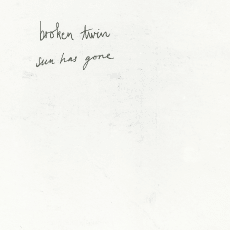 broken twin
sun has gone